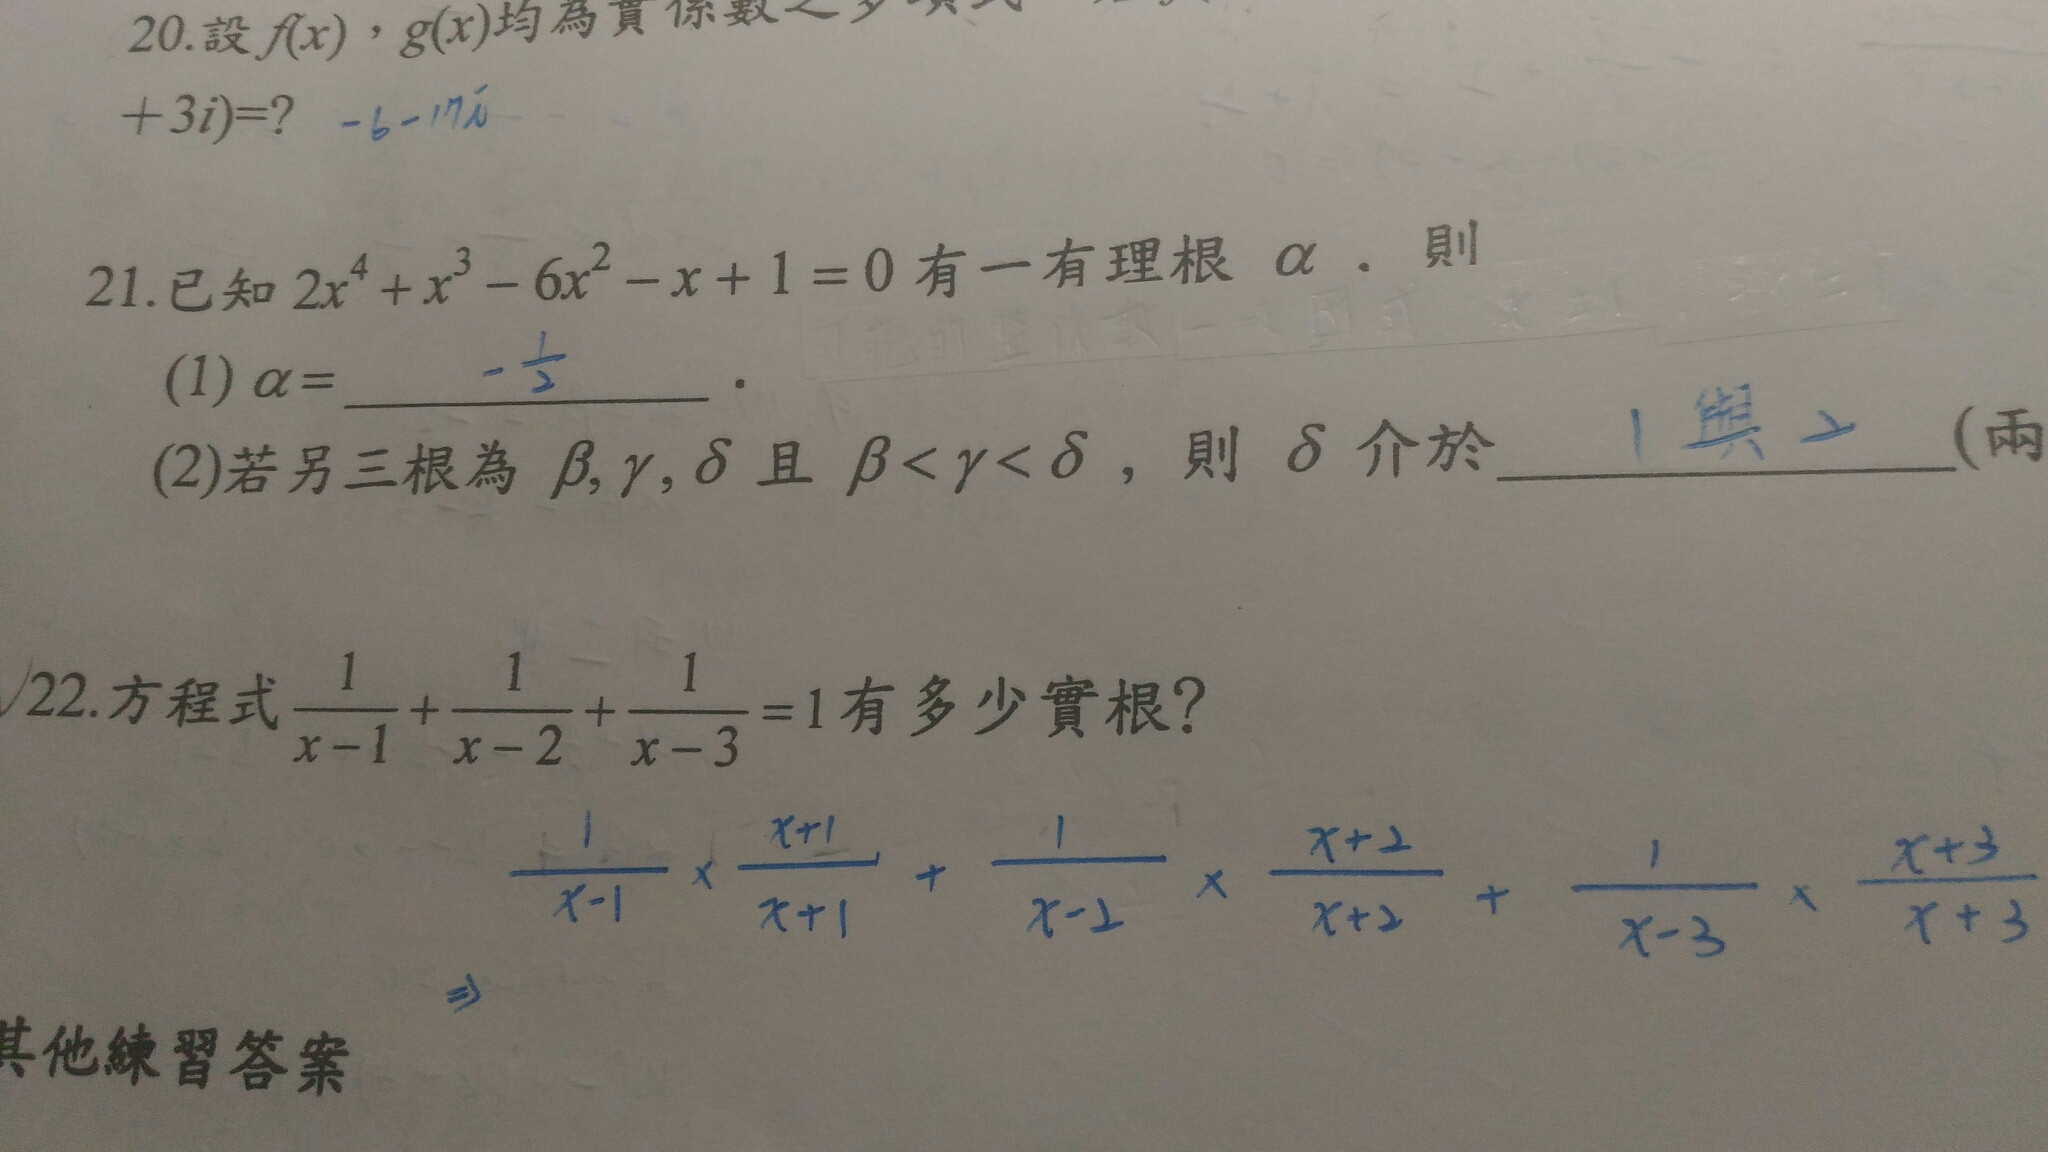 20.設 f(x)，g(x)均為實係數之多項式
+3i)=? -6-17i
21.已知 2x⁴+x³-6x²-x+1=0 有一有理根 α . 則
(1) α= -1/2 .
(2)若另三根為 β,γ,δ 且 β<γ<δ , 則 δ 介於 1 與 2 (兩
√22.方程式 1/(x-1) + 1/(x-2) + 1/(x-3) =1 有多少實根?
1/(x-1) × (x+1)/(x+1) + 1/(x-2) × (x+2)/(x+2) + 1/(x-3) × (x+3)/(x+3)
⇒
其他練習答案